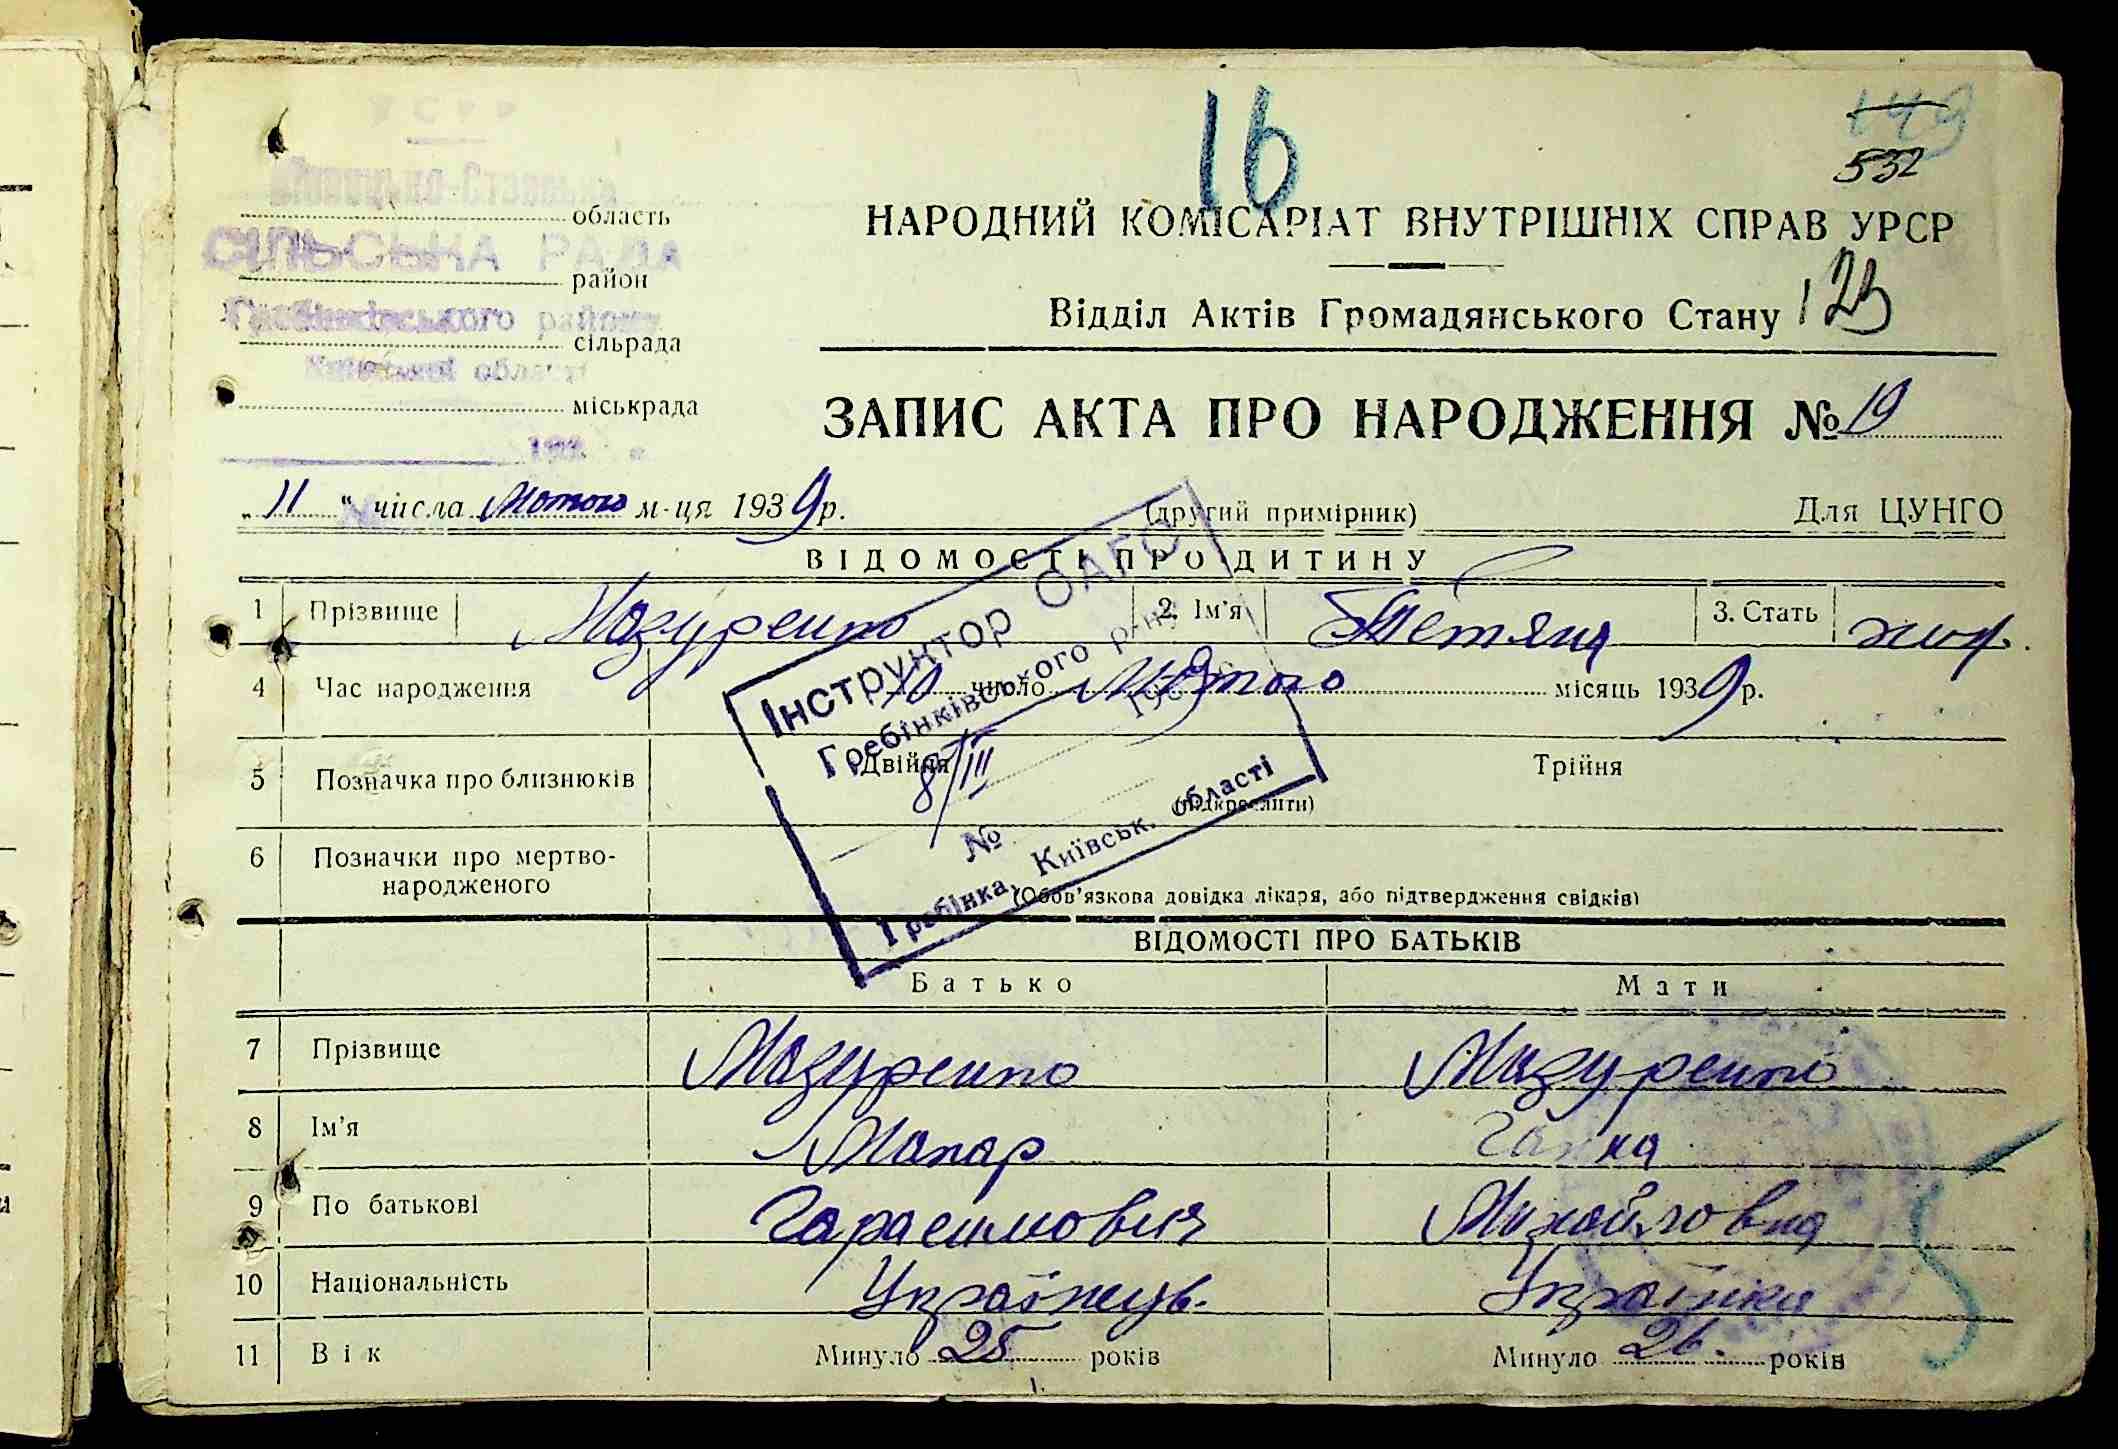 16
149
532
УСРР
область
СІЛЬСЬКА РАДА
район
Гребінківського району
сільрада
Київської області
міськрада
НАРОДНИЙ КОМІСАРІАТ ВНУТРІШНІХ СПРАВ УРСР
Відділ Актів Громадянського Стану
123
ЗАПИС АКТА ПРО НАРОДЖЕННЯ № 19
„11“ числа Лютого м-ця 1939 р.
(другий примірник)
Для ЦУНГО
ВІДОМОСТІ ПРО ДИТИНУ
1 Прізвище Мазуренко 2. Ім'я Тетяна 3. Стать жіф.
4 Час народження 10 число Лютого місяць 1939 р.
5 Позначка про близнюків Двійня Трійня
(підкреслити)
6 Позначки про мертво-
народженого
(Обов'язкова довідка лікаря, або підтвердження свідків)
Інструктор ОАГС
Гребінківського р-ну
8/III 1939
№
Гребінка, Київськ. області
ВІДОМОСТІ ПРО БАТЬКІВ
Батько Мати
7 Прізвище Мазуренко Мазуренко
8 Ім'я Макар Ганна
9 По батькові Гарасимович Михайловна
10 Національність Українець. Українка
11 Вік Минуло 25 років Минуло 26. років